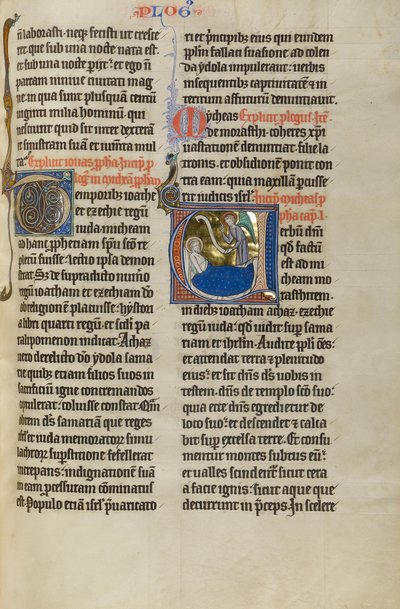 PLOG9
i laborasti. neq; fecisti ut cresce
ret. que sub una nocte nata est.
et sub una nocte perijt. et ego n̄
parcam niniue ciuitati mag
ne. in qua sunt plusquam centū
uiginti milia hominum. qui
nesciunt quid sit inter dexterā
et sinistram suā et iumēta mul
ta. Explicit ionas ꝓpha. Incip̄ p̄
log in micheam ꝓpham
Temporibus ioathe
et ezechie regū
iuda. micheam
ad hanc ꝓphetiam sp̄m sc̄m re
pletum fuisse. lectio ip̄sa demon
strat. Sȝ de supradicto nūmo
regū ioatham et ezechiam dō
ob religionem placuisse. hyston
a libri quarti regū. et sc̄di pa
ralipomenon indicat. Achaz
uero derelicto dō ydola sama
rie quibȝ etiam filios suos in
sacrificiū igne concremandos
optulerat. coluisse constat. Qm̄
obrem dn̄s samariā que reges
isrl̄. et iuda memoratos simu
lachroȝ superstitione fefellerat
increpans. indignationē suā
in eam ꝓcessuram cōminatus
est. Populo etiā isrl̄ p̄uaricato
ri. et principibȝ eius qui eundem
ppl̄m fallaci suasione ad colen
da ydola impulerant. uerbis
insequentibȝ captiuitatē et in
teritum affuturū denuntiauit.
Mycheas Explicit plogus. Ite
de morasthi. coheres xp̄i
uastationē denuntiat. filie la
tronis. et obsidionem ponit con
tra eam. quia maxillā percusse
rit iudicis isrl̄. Incip̄ micheas ꝓ
pha cap. I.
erbū dn̄i
qd̄ factū
est ad mi
cheam mo
rasthitem.
in diebȝ ioatham achaz. ezechie
regū iuda. qd̄ uidit super sama
riam et ihrl̄m. Audite ppl̄i om̄s.
et attendat terra et plenitudo
eius. et sit dn̄s ds̄ uobis in
testem. dn̄s de templo sc̄o suo.
quia ecce dn̄s egredietur de
loco suo. et descendet et calca
bit super excelsa terre. Et consu
mentur montes subtus eū.
et ualles scindent̄. sicut cera
a facie ignis. sicut aque que
decurrunt in p̄ceps. In scelere